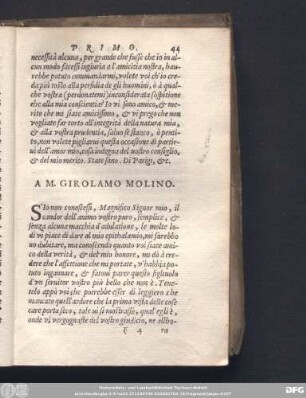 PRIMO. 44
necessità alcuna, per grande che fusse che io in al-
cun modo facessi ingiuria a l'amicitia nostra, hau-
rebbe potuto commandarmi, volete voi ch'io cre-
da piu tosto alla perfidia de gli huomini, ò à qual-
che vostra (perdonatemi) inconsiderata suspitione
che alla mia conscientia? Io vi sono amico, &
merito che mi siate amicissimo, & vi prego che non
vogliate far torto all'integrità della natura mia,
& alla vostra prudentia, saluo se stanco, ò penti-
to, non volete pigliarui questa occasione di partir-
ui dell'amor mio, cosa indegna del vostro consiglio,
& del mio merito. State sano. Di Parigi, &c.
A M. GIROLAMO MOLINO.
S'Io non conoscessi, Magnifico Signor mio, il
candor dell'animo vostro puro, semplice, &
senza alcuna macchia d'adulatione, le molte lo-
di vi piace di dare al mio epithalamio, mi farebbo
no dubitare, ma conoscendo quanto voi siate ami-
co della verità, & del mio honore, mi dò à cre-
dere che l'affettione che mi portate, v'habbia po-
tuto ingannare, & fattoui parer questo figliuolo
d'un seruitor vostro piu bello che non è. Tene-
telo appò voi che potrebbe esser di leggiero che
mancato quell'ardore che la prima vista delle cose
care porta seco, tale vi si mostrasse, qual egli è,
onde vi vergognaste del vostro giudicio, ne allho-
4 ra